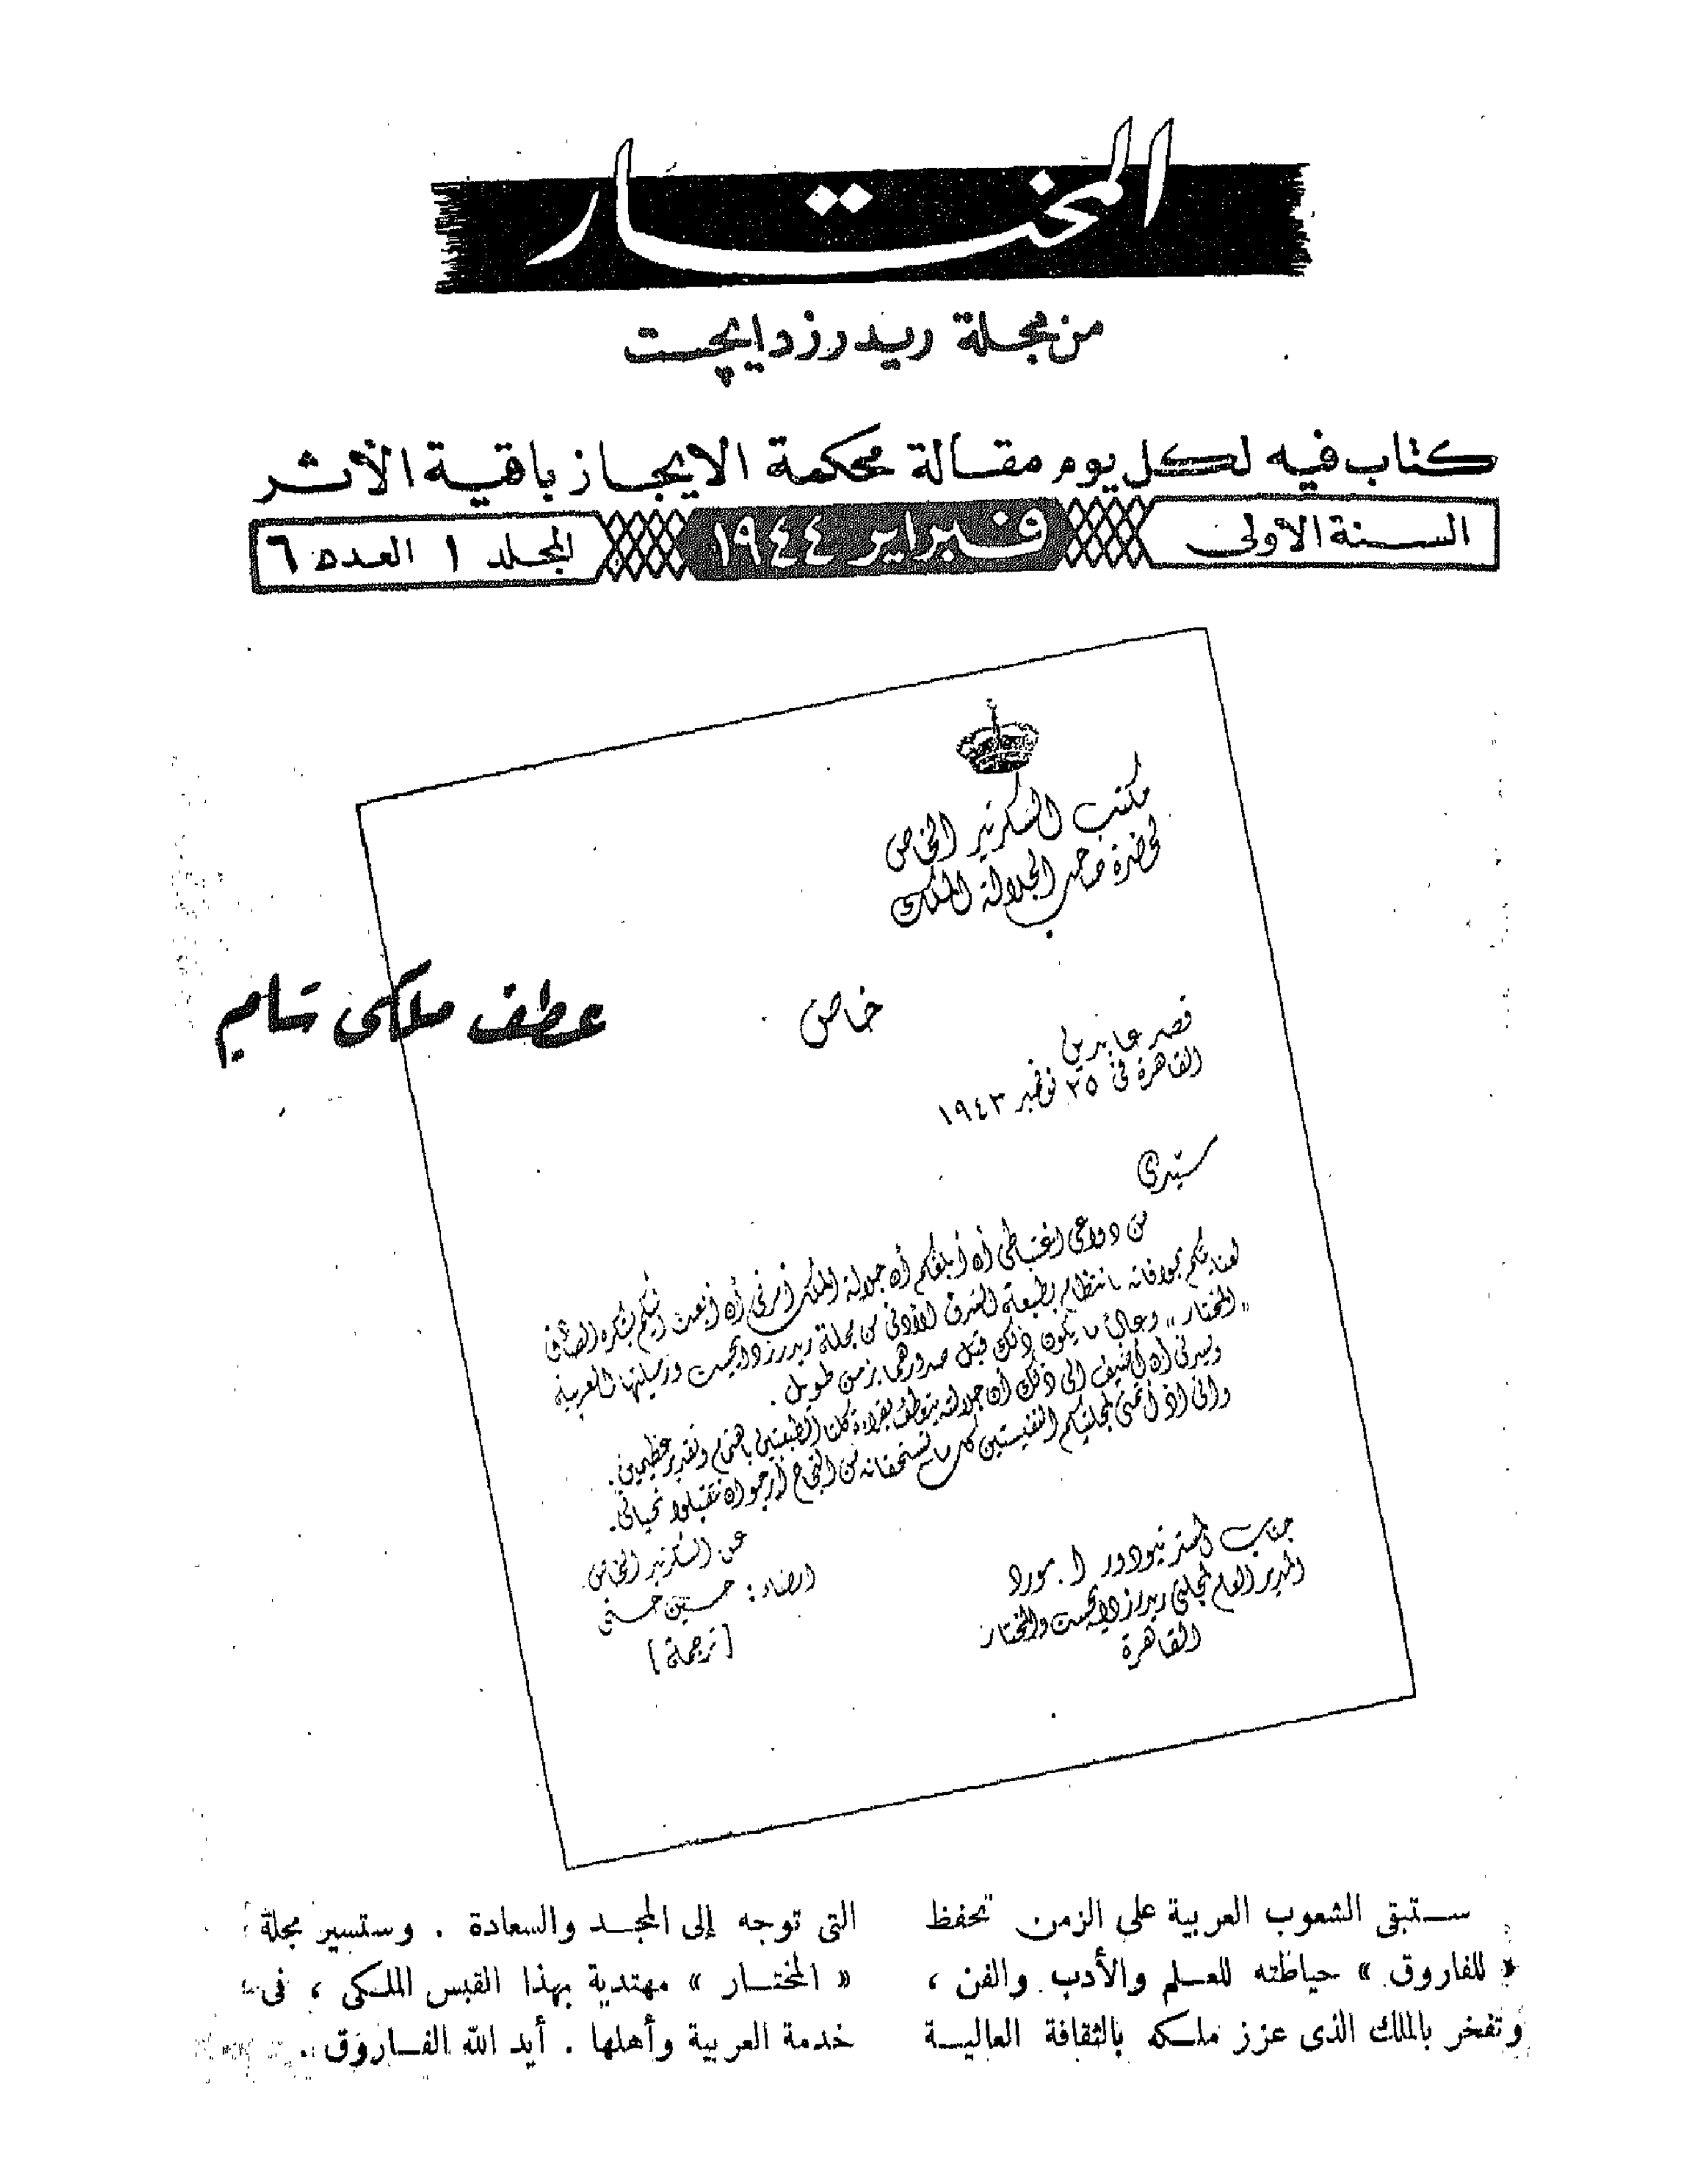 المختار
من مجلة ريدرز دايچست
كتاب فيه لكل يوم مقالة محكمة الايجاز باقية الأثر
السنة الأولى
فبراير ١٩٤٤
المجلد ١ العدد ٦
مكتب السكرتير الخاص
لحضرة صاحب الجلالة الملك
عطف ملكى سام
خاص
قصر عابدين
القاهرة فى ٢٥ نوفمبر ١٩٤٣
سيدى
من دواعى اغتباطى أن أبلغكم أن جلالة الملك أمرنى أن أبعث إليكم بشكره الصادق
لعنايتكم بموافاته بانتظام بطبعة الشرق الأدنى من مجلة ريدرز دايجست وزميلتها العربية
"المختار" وغالبا ما يكون ذلك قبل صدورهما بزمن طويل.
ويسرنى أن أضيف الى ذلك أن جلالته يتعطف بقراءة كلتا الطبعتين باهتمام وتقدير عظيمين.
وانى اذ أتمنى لمجلتيكم النفيستين كل ما تستحقانه من النجاح أرجو أن تقبلوا تحياتى.
عن السكرتير الخاص
امضاء: حسين حسنى
[ترجمة]
جناب المستر تيودور ا. مورد
المدير العام لمجلتى ريدرز دايجست والمختار
القاهرة
ستبقى الشعوب العربية على الزمن تحفظ
« للفاروق » حياطته للعلم والأدب والفن ،
وتفخر بالملك الذى عزز ملكه بالثقافة العالية
التى توجه إلى المجد والسعادة . وستسير مجلة
« المختار » مهتدية بهذا القبس الملكى ، فى
خدمة العربية وأهلها . أيد الله الفاروق .